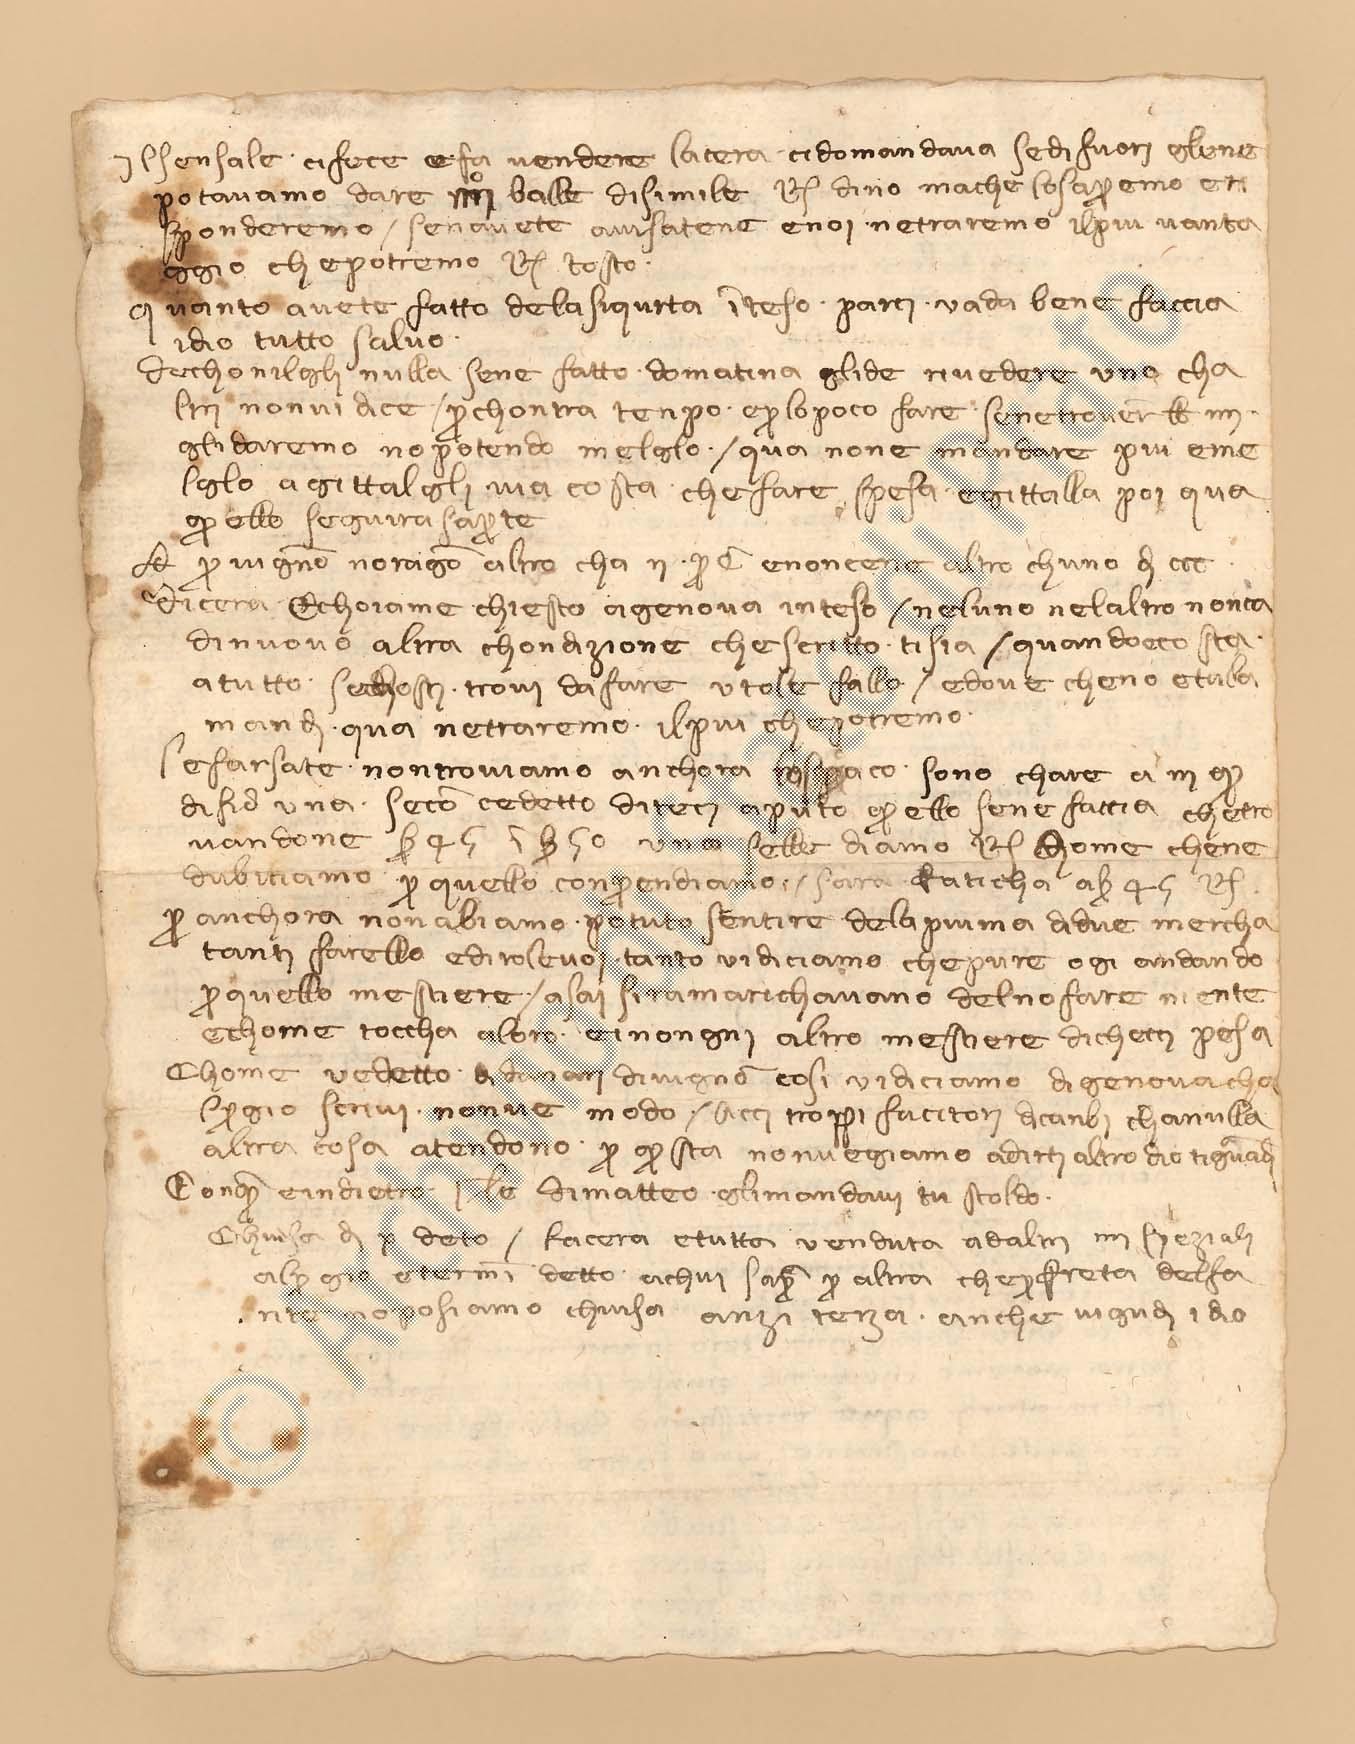 Jlsensale cifece e fa vendere lacera cidomandava sedifuori gliene
potavamo dare iiijº balle disimile Rs dino mache losapremo eri
sponderemo / senavete avisatene enoi netraremo ilpiu vanta
ggio chepotremo Rs tosto
quanto avete fatto delasiqurta iteso parci vada bene faccia
idio tutto salvo
dechonilgli nulla sene fatto domatina glide rivedere uno cha
ltri nonvidice / prchontra tenpo eprlopoco fare senetrover iiij
glidaremo nopotendo melglo / qua none mandare piu eme
lglo agittalgli via costa chefare spesa egittalla poi qua
qello seguira saprte
pr vignone altro cha ij pr C enoncene altro chuno d ccc
dicera echoiame chiesto agenova inteso / neluno nelaltro nonca
dinuovo altra chondizione chescritto tisia / quandoeco sta
atutto sechosti trovi dafare utole fallo / edove cheno etula
mandi qua netraremo ilpiu chepotremo
lefarsate nontroviamo anchora sono chare a iij qr
disid una seco cedetto direci aputo qello sene faccia chetro
vandone 45 i 50 una selle diamo Rs chome chene
dubitiamo pr quello conprendiamo / sara faticha a 45 Rs
pr anchora nonabiamo potuto sentire delapiuma didue mercha
tanti farello edirolevoi tanto vidiciamo chepure ogi andando
prquello mestiere / asai siramarichavano delnofare niente
echome toccha aloro einongni altro mestiere dichetti pesa
Chome vedetto didanari divignone cosi vidiciamo digenovacha
lpregio scrivi nonve modo / acci troppi facitori dicanbi chanulla
altra cosa atendono pr qsta nonvegiamo adirti altro dio tiguardi
Conqs eindietro le dimatteo glimandavi tu stoldo
Chiusa di pr deto / lacera etutta venduta adaltri iiij speziali
alpregio etermi detto achui sapra pr altra cheprfreta delfa
nte noposiamo chiusa anzi terza anche vigudi idio
© ARCHIVIO DI STATO DI PRATO